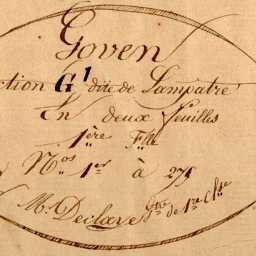 Goven
ction G1 dite de Lampatre
En deux feuilles
1ère Flle
Nos 1er à 275
Mr Declave Gtre de 1re Clsse